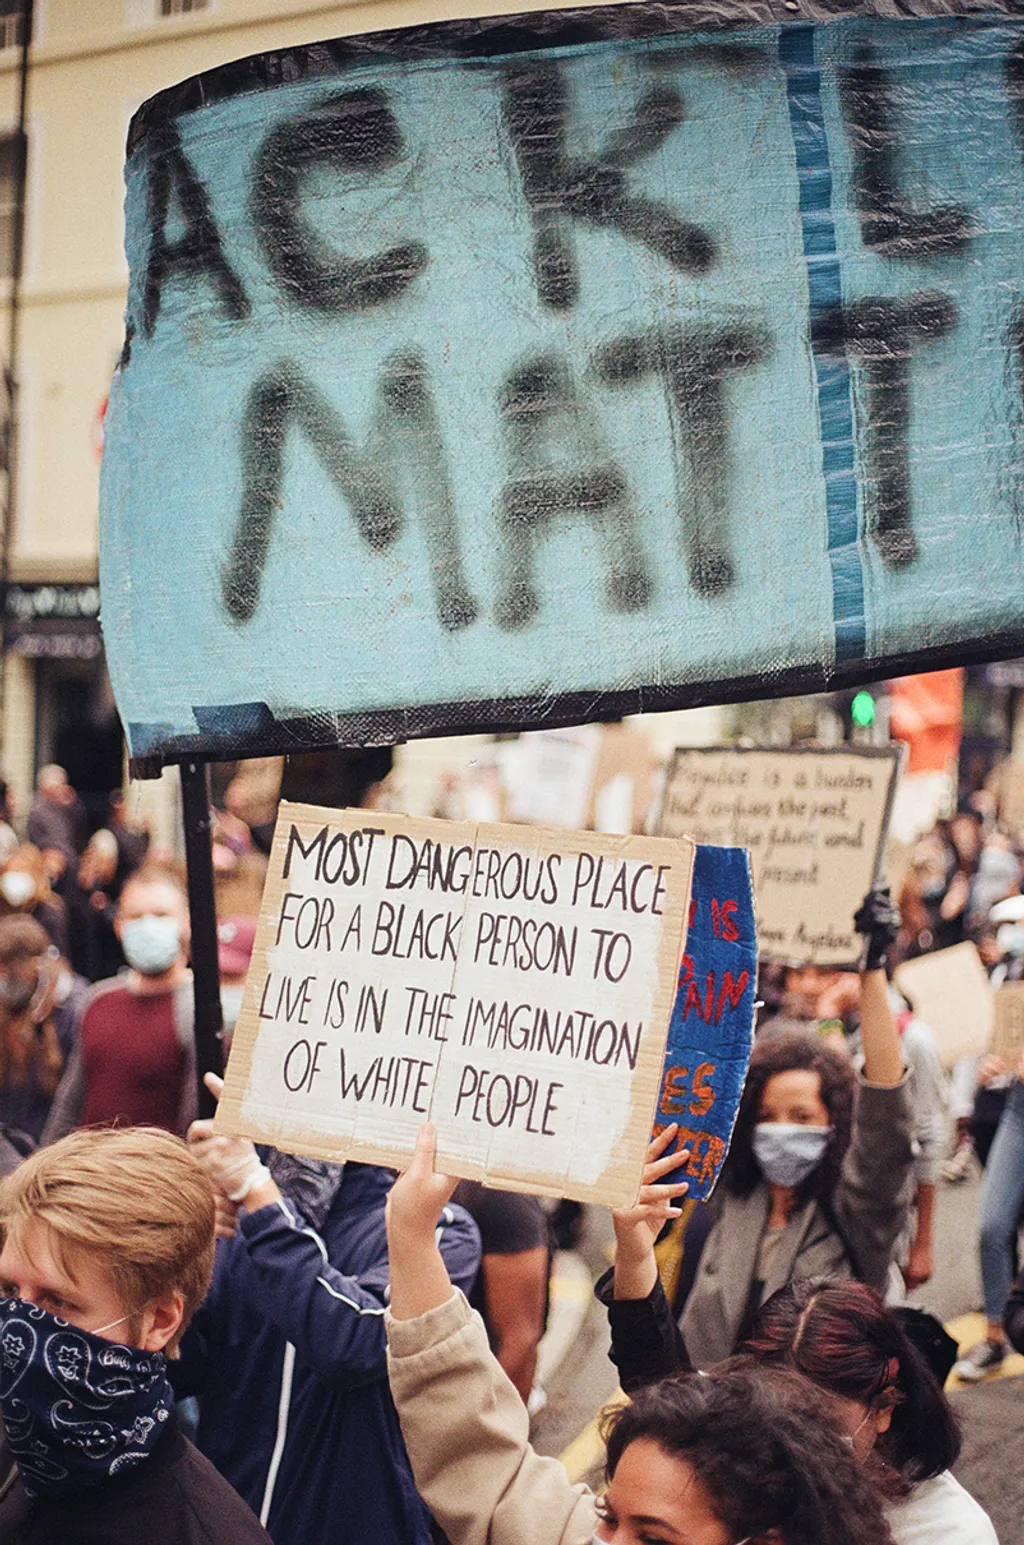 ACK L
MATT
MOST DANGEROUS PLACE
FOR A BLACK PERSON TO
LIVE IS IN THE IMAGINATION
OF WHITE PEOPLE
Prejudice is a burden
that confuses the past,
the future, and
present
Maya Angelou
IS
PAIN